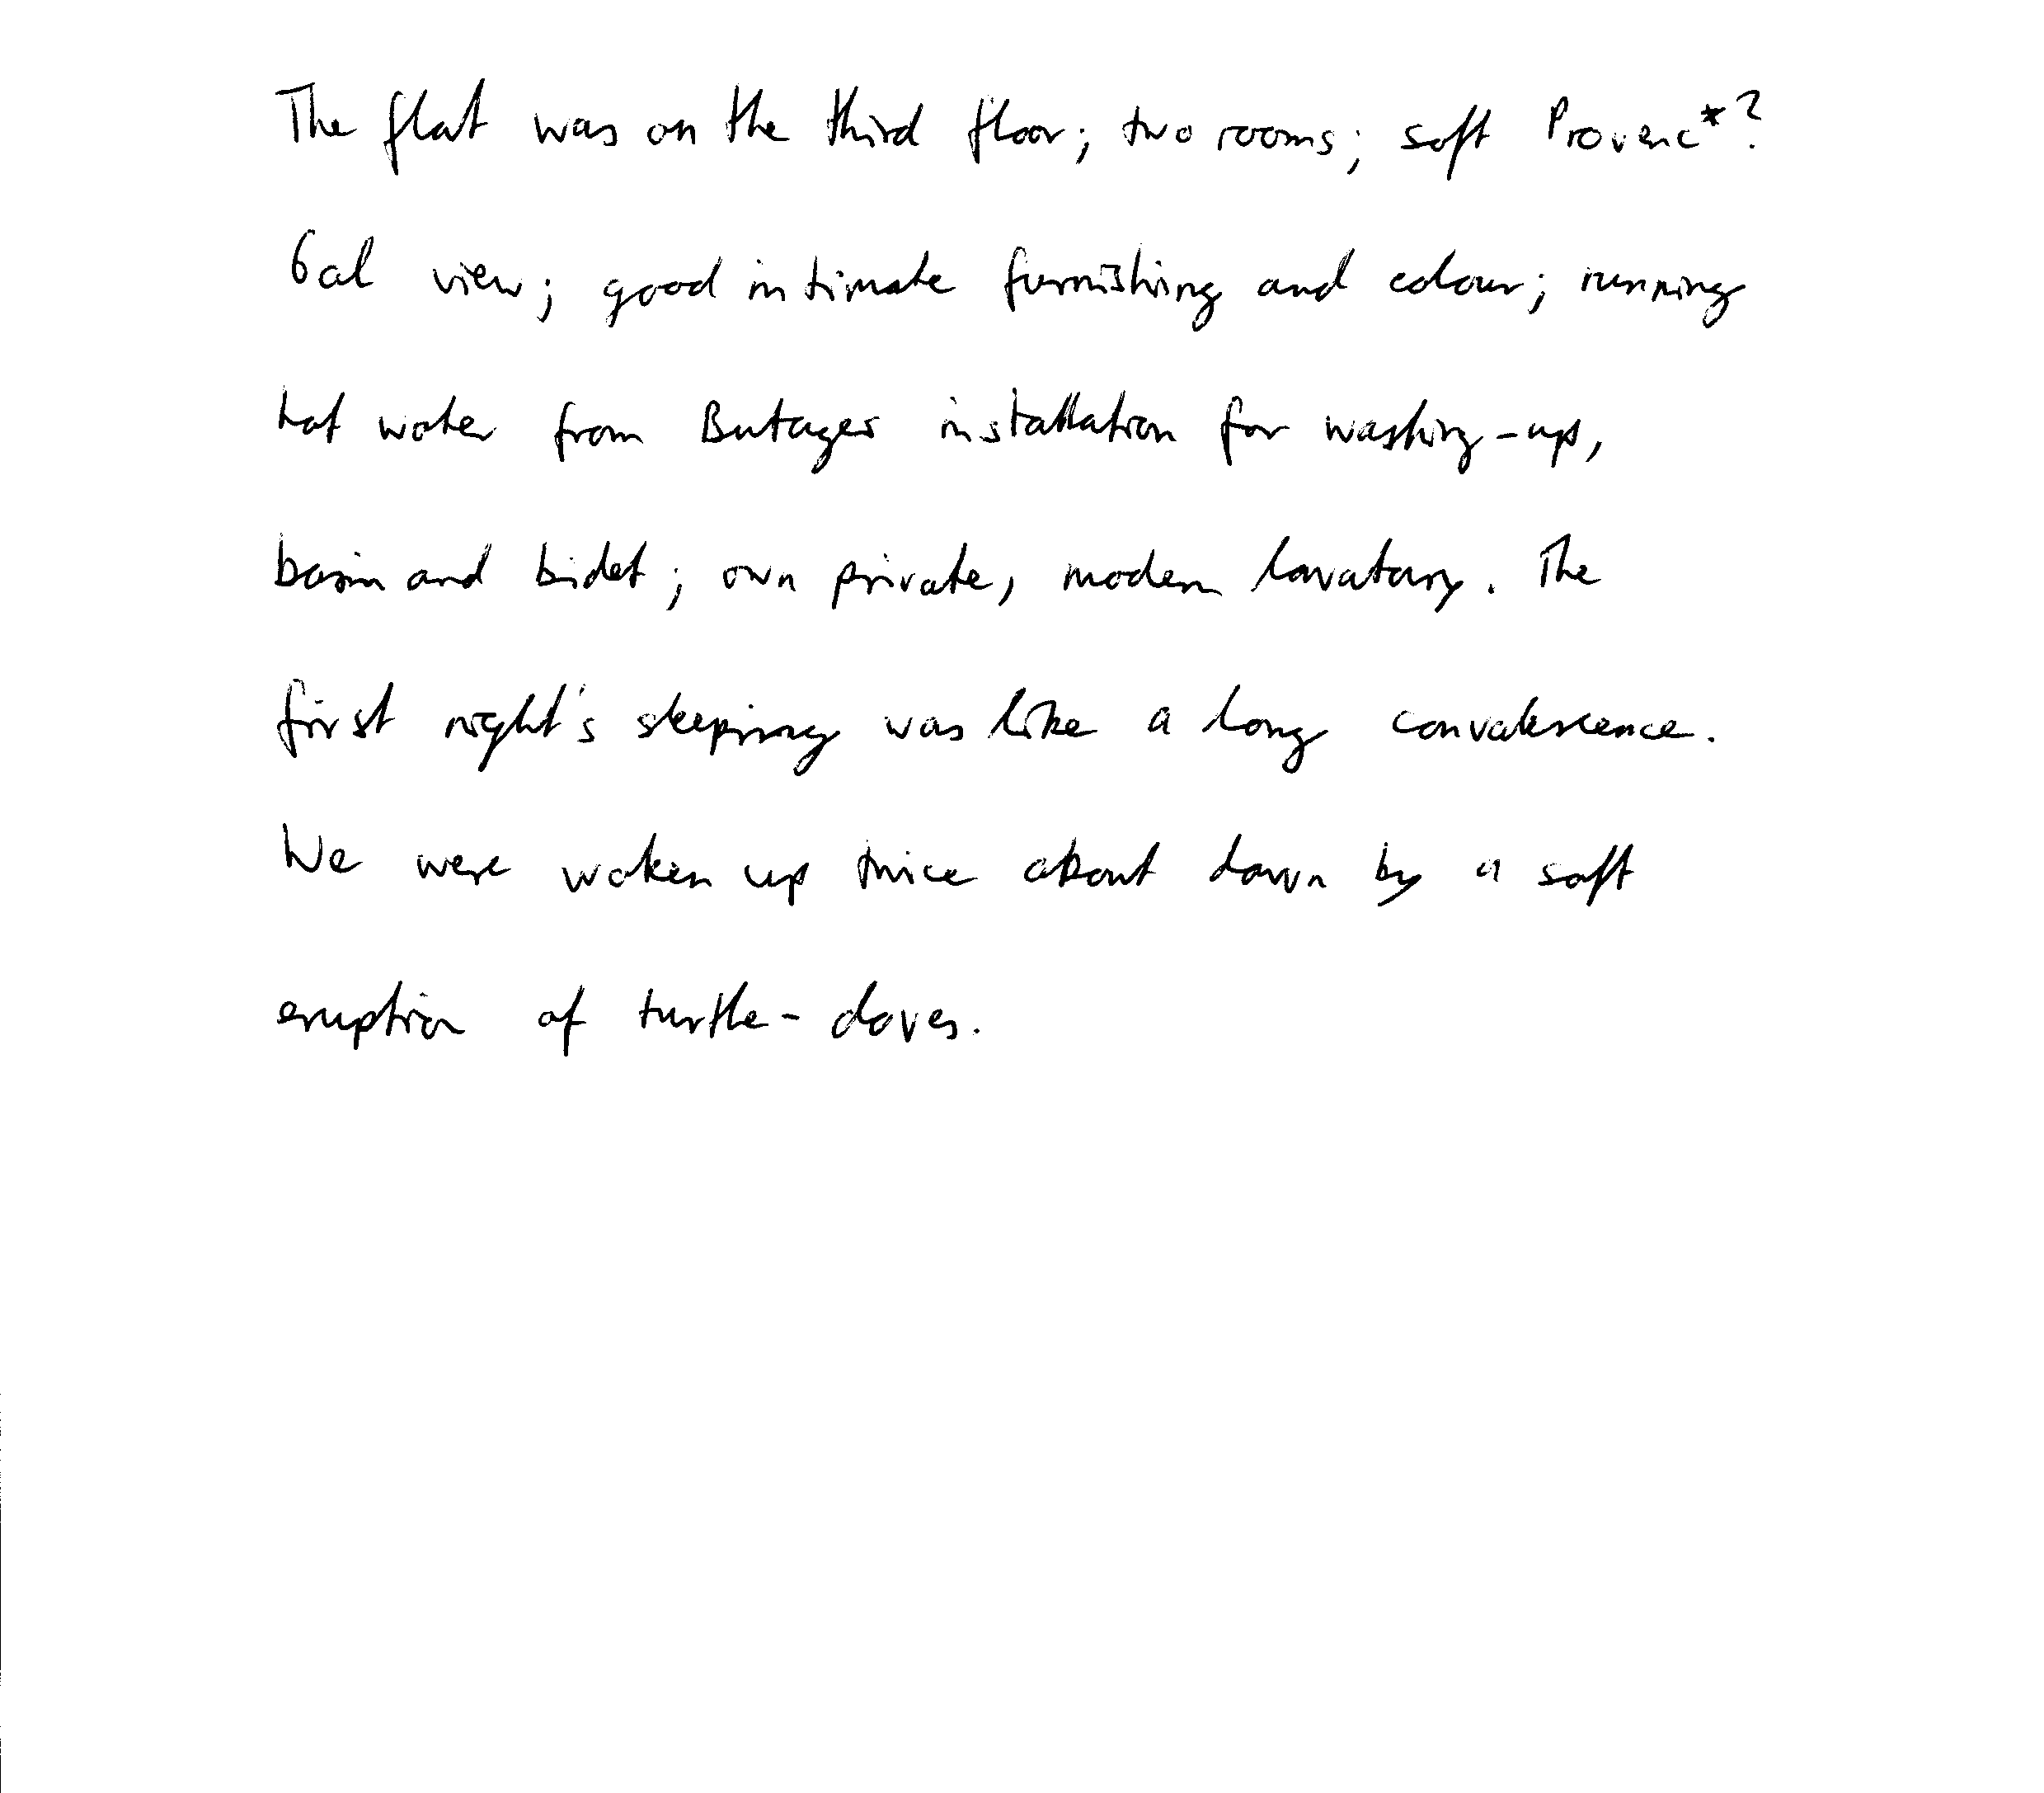 The flat was on the third floor; two rooms; soft Provenc*?
6al view; good intimate furnishing and colour; running
hot water from Butages installation for washing-up,
basin and bidet; own private, modern lavatory. The
first night's sleeping was like a long convalescence.
We were woken up twice about dawn by a soft
eruption of turtle-doves.